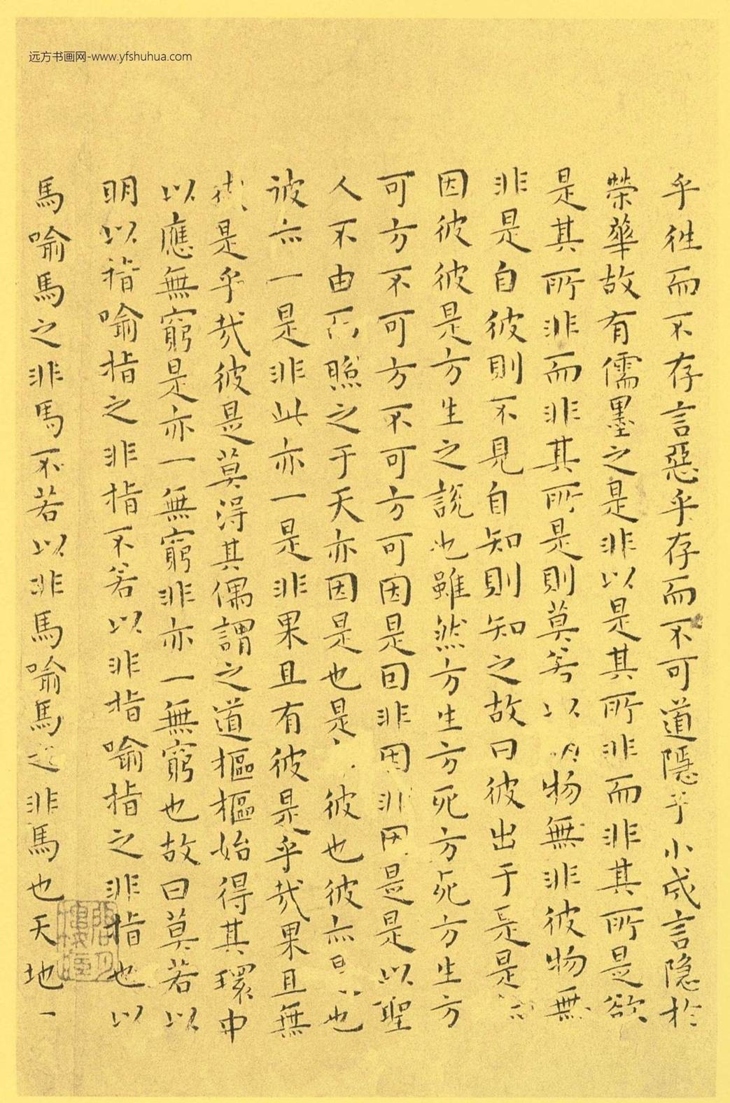 远方书画网-www.yfshuhua.com
乎往而不存言惡乎存而不可道隱乎小成言隐於
榮華故有儒墨之是非以是其所非而非其所是欲
是其所非而非其所是則莫若以明物無非彼物無
非是自彼則不見自知則知之故曰彼出于是是
因彼彼是方生之說也雖然方生方死方死方生方
可方不可方不可方可因是因非因非因是是以聖
人不由而照之于天亦因是也是彼也彼亦是也
彼亦一是非此亦一是非果且有彼是乎哉果且無
彼是乎哉彼是莫得其偶謂之道樞樞始得其環中
以應無窮是亦一無窮非亦一無窮也故曰莫若以
明以指喻指之非指不若以非指喻指之非指也以
馬喻馬之非馬不若以非馬喻馬之非馬也天地一